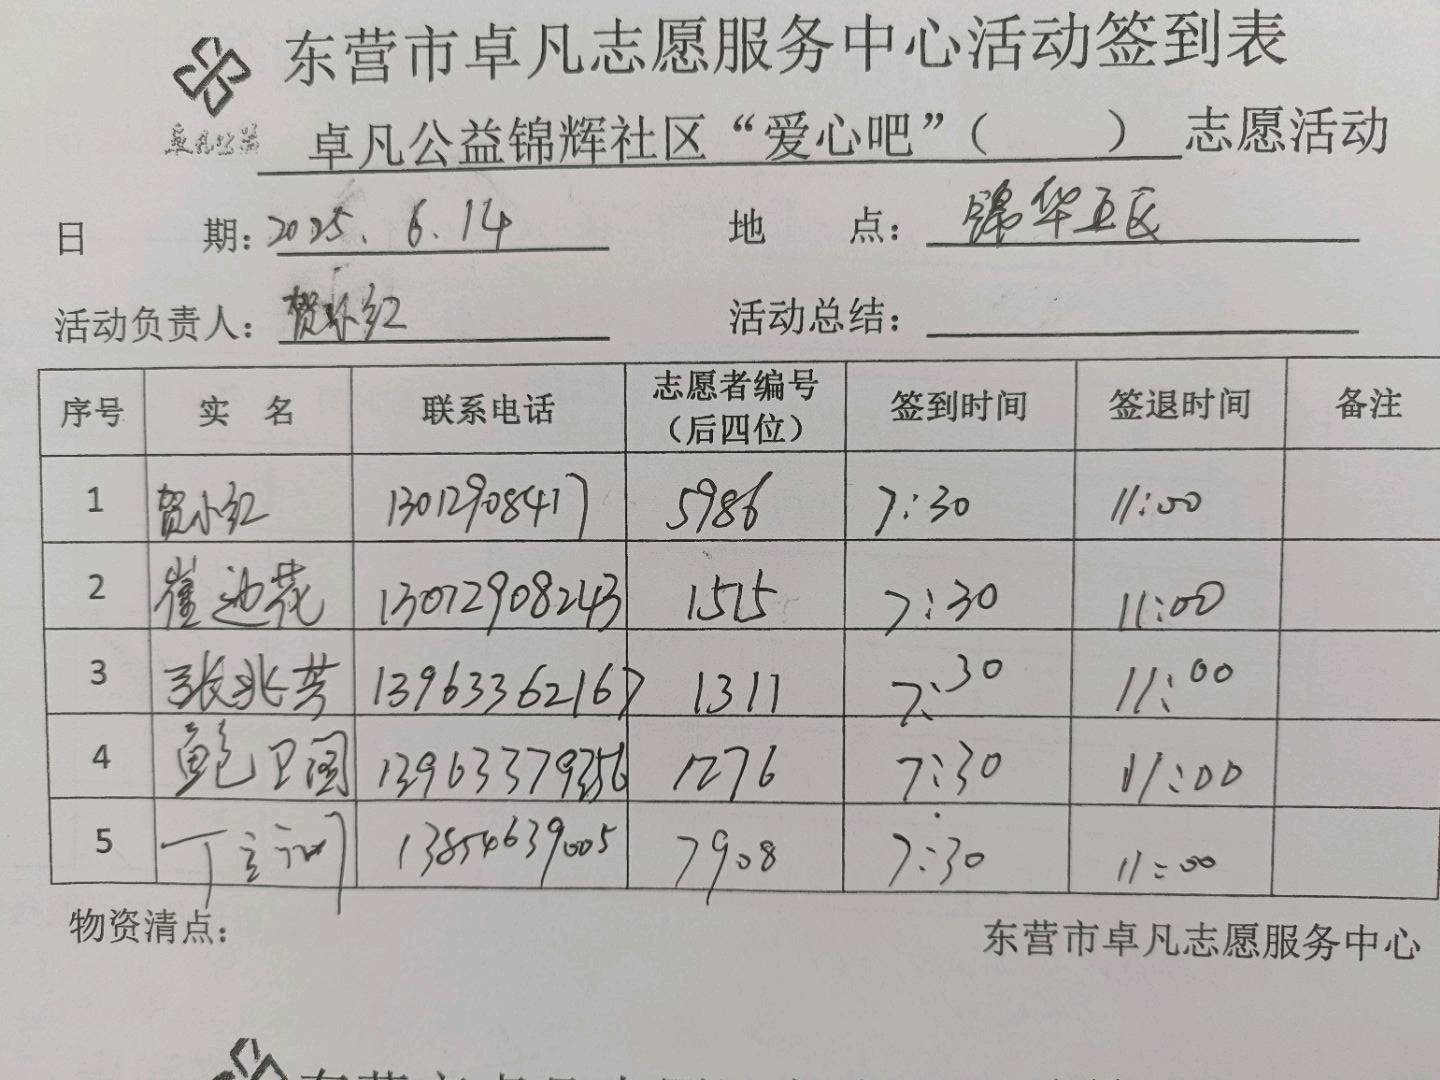 东营市卓凡志愿服务中心活动签到表
卓凡公益
卓凡公益锦辉社区“爱心吧”( ) 志愿活动
日 期: 2025.6.14 地 点: 锦华五区
活动负责人: 贺小红 活动总结:
序号 实 名 联系电话 志愿者编号（后四位） 签到时间 签退时间 备注
1 贺小红 13012908417 5986 7:30 11:00
2 崔迎花 13012908243 1515 7:30 11:00
3 张兆芳 13963362167 1311 7:30 11:00
4 鲍卫国 13963379356 1276 7:30 11:00
5 丁立训 13854639005 7908 7:30 11:00
物资清点: 东营市卓凡志愿服务中心